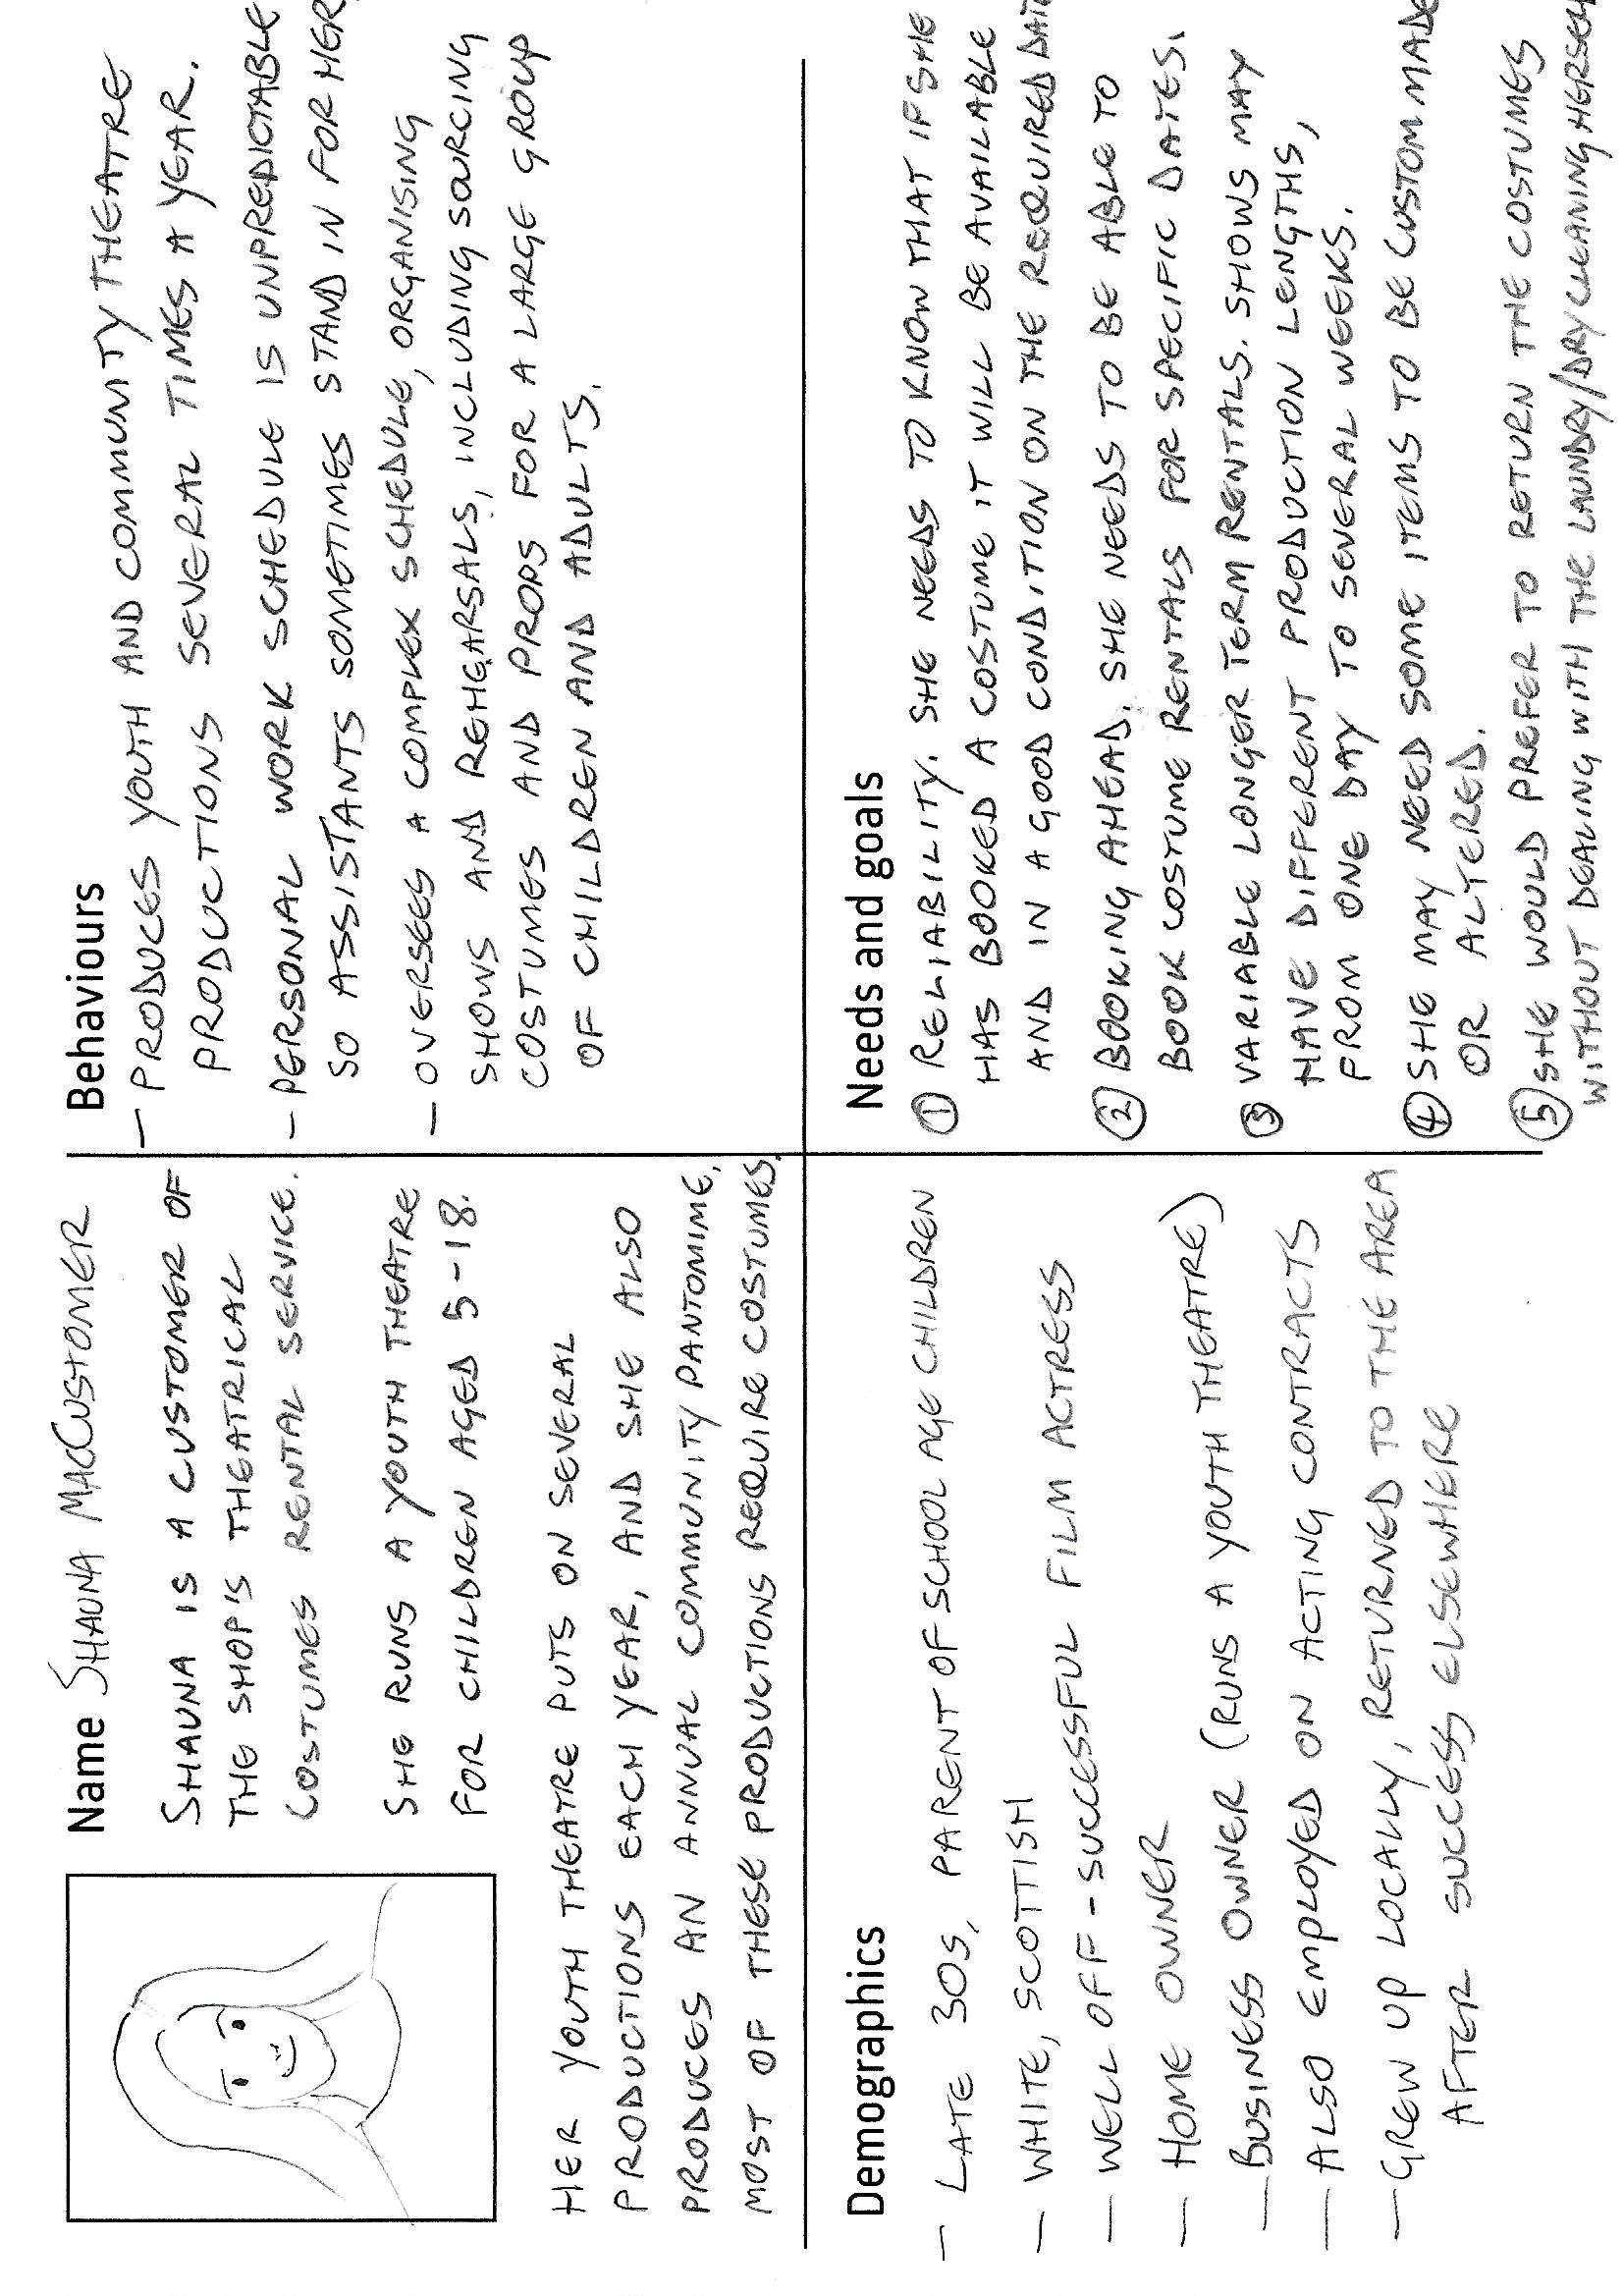 Name SHAUNA MACCUSTOMER
SHAUNA IS A CUSTOMER OF
THE SHOP'S THEATRICAL
COSTUMES RENTAL SERVICE.
SHE RUNS A YOUTH THEATRE
FOR CHILDREN AGED 5-18.
HER YOUTH THEATRE PUTS ON SEVERAL
PRODUCTIONS EACH YEAR, AND SHE ALSO
PRODUCES AN ANNUAL COMMUNITY PANTOMIME.
MOST OF THESE PRODUCTIONS REQUIRE COSTUMES.
Behaviours
- PRODUCES YOUTH AND COMMUNITY THEATRE
PRODUCTIONS SEVERAL TIMES A YEAR.
- PERSONAL WORK SCHEDULE IS UNPREDICTABLE
SO ASSISTANTS SOMETIMES STAND IN FOR HER,
- OVERSEES A COMPLEX SCHEDULE, ORGANISING
SHOWS AND REHEARSALS, INCLUDING SOURCING
COSTUMES AND PROPS FOR A LARGE GROUP
OF CHILDREN AND ADULTS.
Demographics
- LATE 30S, PARENT OF SCHOOL AGE CHILDREN
- WHITE, SCOTTISH
- WELL OFF - SUCCESSFUL FILM ACTRESS
- HOME OWNER
- BUSINESS OWNER (RUNS A YOUTH THEATRE)
- ALSO EMPLOYED ON ACTING CONTRACTS
- GREW UP LOCALLY, RETURNED TO THE AREA
AFTER SUCCESS ELSEWHERE
Needs and goals
① RELIABILITY. SHE NEEDS TO KNOW THAT IF SHE
HAS BOOKED A COSTUME IT WILL BE AVAILABLE
AND IN A GOOD CONDITION ON THE REQUIRED DATE
② BOOKING AHEAD. SHE NEEDS TO BE ABLE TO
BOOK COSTUME RENTALS FOR SPECIFIC DATES.
③ VARIABLE LONGER TERM RENTALS. SHOWS MAY
HAVE DIFFERENT PRODUCTION LENGTHS,
FROM ONE DAY TO SEVERAL WEEKS.
④ SHE MAY NEED SOME ITEMS TO BE CUSTOM MADE
OR ALTERED.
⑤ SHE WOULD PREFER TO RETURN THE COSTUMES
WITHOUT DEALING WITH THE LAUNDRY/DRY CLEANING HERSELF